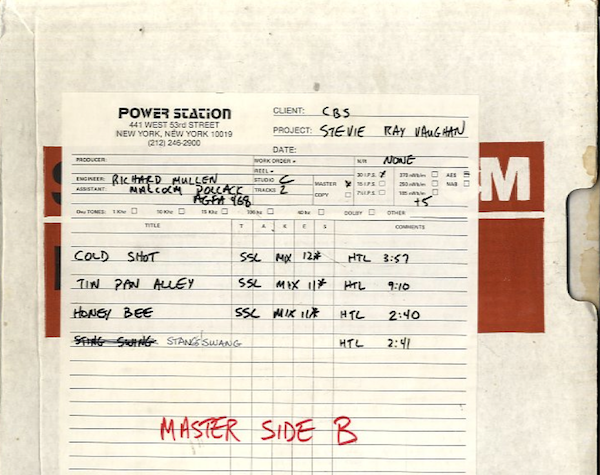 POWER STATION
441 WEST 53rd STREET
NEW YORK, NEW YORK 10019
(212) 246-2900
CLIENT: CBS
PROJECT: STEVIE RAY VAUGHAN
DATE:
PRODUCER: WORK ORDER N/R NONE
REEL
ENGINEER: RICHARD MULLEN STUDIO C MASTER X 30 I.P.S. X 370 nWb/m AES
ASSISTANT: MALCOLM POLLACK TRACKS 2 COPY 15 I.P.S. 250 nWb/m NAB
AGFA 468 7½ I.P.S. 185 nWb/m
+5
TONES: 1 Khz 10 Khz 15 Khz 100 hz 50 hz DOLBY OTHER
TITLE T A K E S COMMENTS
COLD SHOT SSL MIX 12* HTL 3:57
TIN PAN ALLEY SSL MIX 11* HTL 9:10
HONEY BEE SSL MIX 11* HTL 2:40
STING SWING STANG'SWANG HTL 2:41
MASTER SIDE B
M